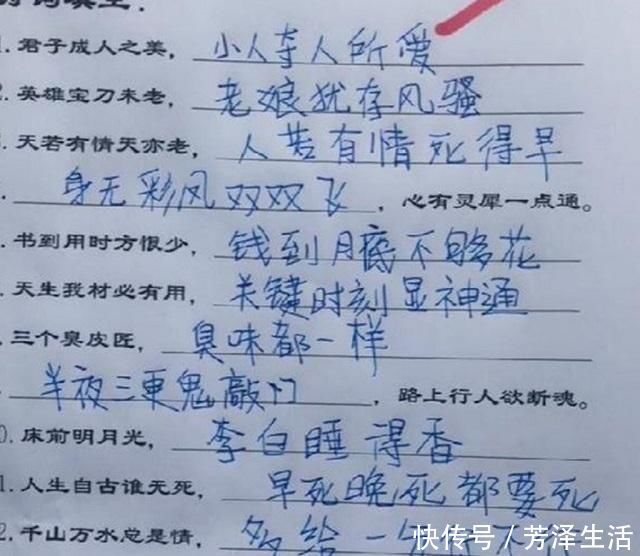 . 君子成人之美，小人夺人所爱
. 英雄宝刀未老，老娘犹存风骚
. 天若有情天亦老，人若有情死得早
身无彩凤双双飞，心有灵犀一点通。
. 书到用时方恨少，钱到月底不够花
. 天生我材必有用，关键时刻显神通
. 三个臭皮匠，臭味都一样
半夜三更鬼敲门，路上行人欲断魂。
. 床前明月光，李白睡得香
1. 人生自古谁无死，早死晚死都要死
2. 千山万水总是情，多给一
快传号 / 芳泽生活